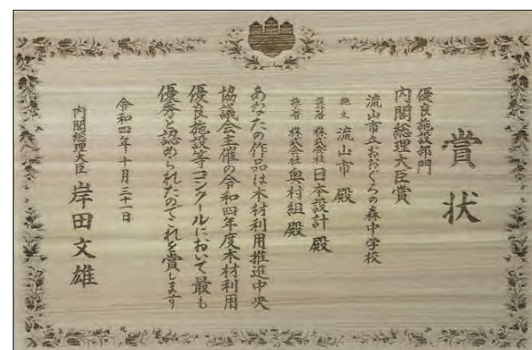 賞状
優良施設部門
内閣総理大臣賞
流山市立おおぐろの森中学校
施主 流山市 殿
設計者 株式会社日本設計 殿
施工者 株式会社奥村組 殿
あなたの作品は木材利用推進中央
協議会主催の令和四年度木材利用
優良施設等コンクールにおいて最も
優秀と認められたのでこれを賞します
令和四年十月三十一日
内閣総理大臣 岸田文雄